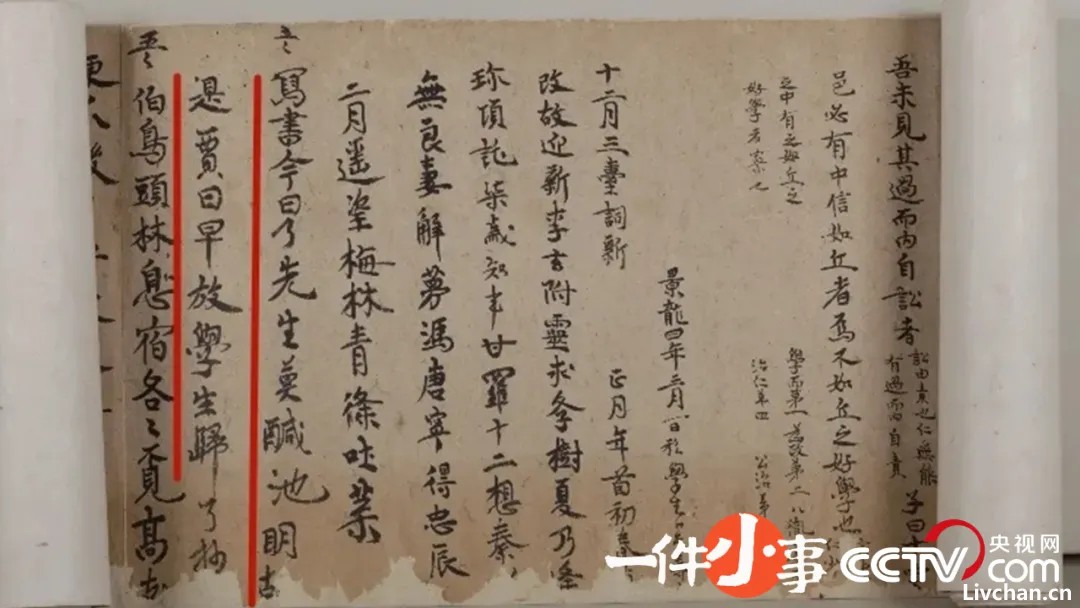 吾未見其過而內自訟者
訟由責也仁無能
有過而自責
子曰十
邑必有中信如丘者焉不如丘之好學也
之中有之如丘之
好學者寡也
學而第一 為政第二 八佾
治仁第四 公冶第
景龍四年三月一日私學生
十二月三臺詞新 正月年首初春
改故迎新李玄附靈求學樹夏乃逢
珎項託柒歲知事甘羅十二想秦
無良妻解夢馮唐寧得忠辰
二月遥望梅林青條吐葉
寫書今日了先生莫醎池明
是賈日早放學生歸 了抄
伯鳥頭林息宿各々覓高
一件小事
CCTV.com
央视网
Livchan.cn